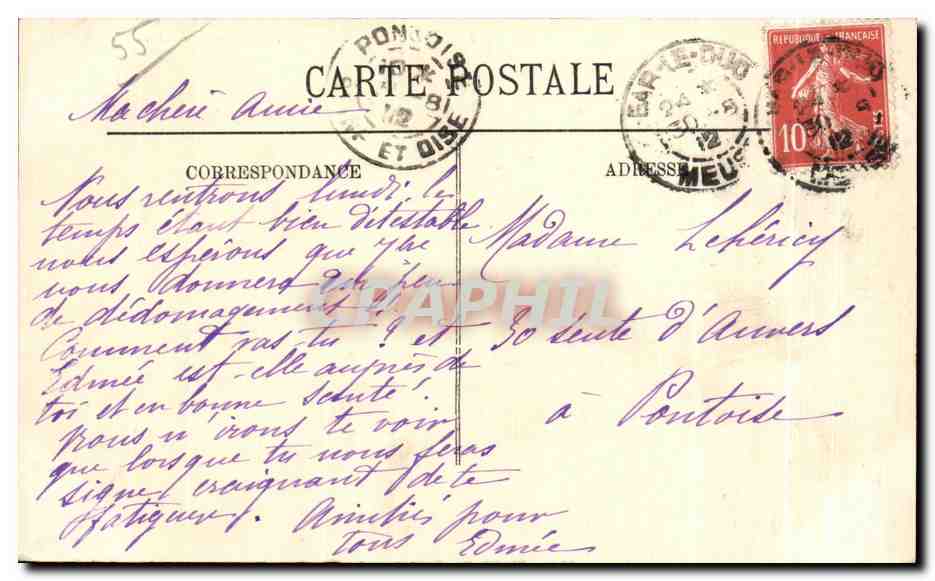 55
CARTE POSTALE
PONTOISE
ET OISE
BAR-LE-DUC
MEUSE
REPUBLIQUE FRANÇAISE
10
Ma cherè Amie
CORRESPONDANCE
ADRESSE
Nous rentrons lundi le
temps étant bien ditestable
nous espérons que
nous donnera un peu
de dédomagement
Comment vas-tu ? et
Edmée est-elle auprès de
toi et en bonne santé.
Nous n'irons te voir
que lorsque tu nous feras
signe craignant de te
fatiguer. Amitiés pour
tous Edmée
Madame Lehéricy
30 sente d'Anvers
à Pontoise
CPAPHIL